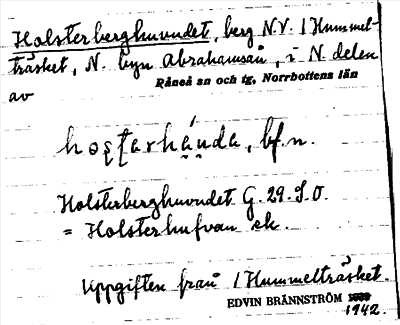 Holsterberghuvudet, berg N.V. / Hummel-
träsket, N. byn Abrahamsån, i N. delen
Råneå sn och tg, Norrbottens län
av
bf. n.
Holsterberghuvudet G. 29. S.O.
= Holsterhufvan ek.
Uppgiften från / Hummelträsket.
EDVIN BRÄNNSTRÖM
1942.